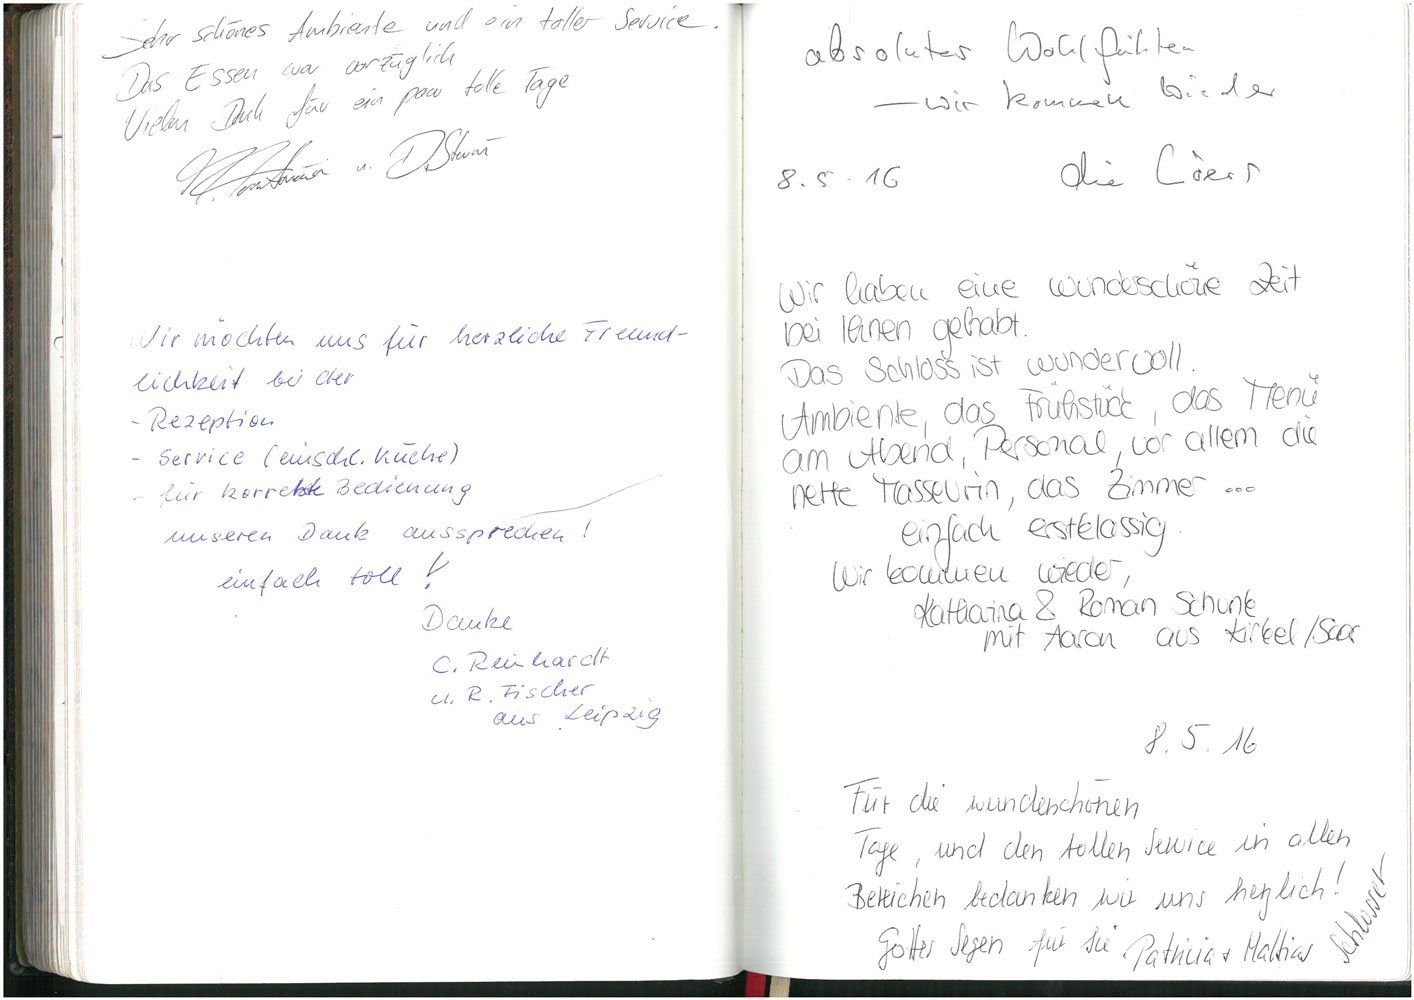 Sehr schönes Ambiente und ein toller Service.
Das Essen war vorzüglich
Vielen Dank für ein paar tolle Tage
u. D. Sturm
Wir möchten uns für herzliche Freund-
lichkeit bei der
- Rezeption
- Service (einschl. Küche)
- für korrekte Bedienung
unseren Dank aussprechen!
einfach toll!
Danke
C. Reinhardt
u. R. Fischer
aus Leipzig
absolutes Wohlfühlen
— wir kommen wieder
8.5.16 die Cöers
Wir haben eine wunderschöne Zeit
bei Ihnen gehabt.
Das Schloss ist wundervoll.
Ambiente, das Frühstück, das Menü
am Abend, Personal, vor allem die
nette Masseurin, das Zimmer ...
einfach erstklassig.
Wir kommen wieder,
Katharina & Roman Schunk
mit Aaron aus Kirkel/Saar
8.5.16
Für die wunderschönen
Tage, und den tollen Service in allen
Bereichen bedanken wir uns herzlich!
Gottes Segen für Sie Patricia + Mathias Schlosser